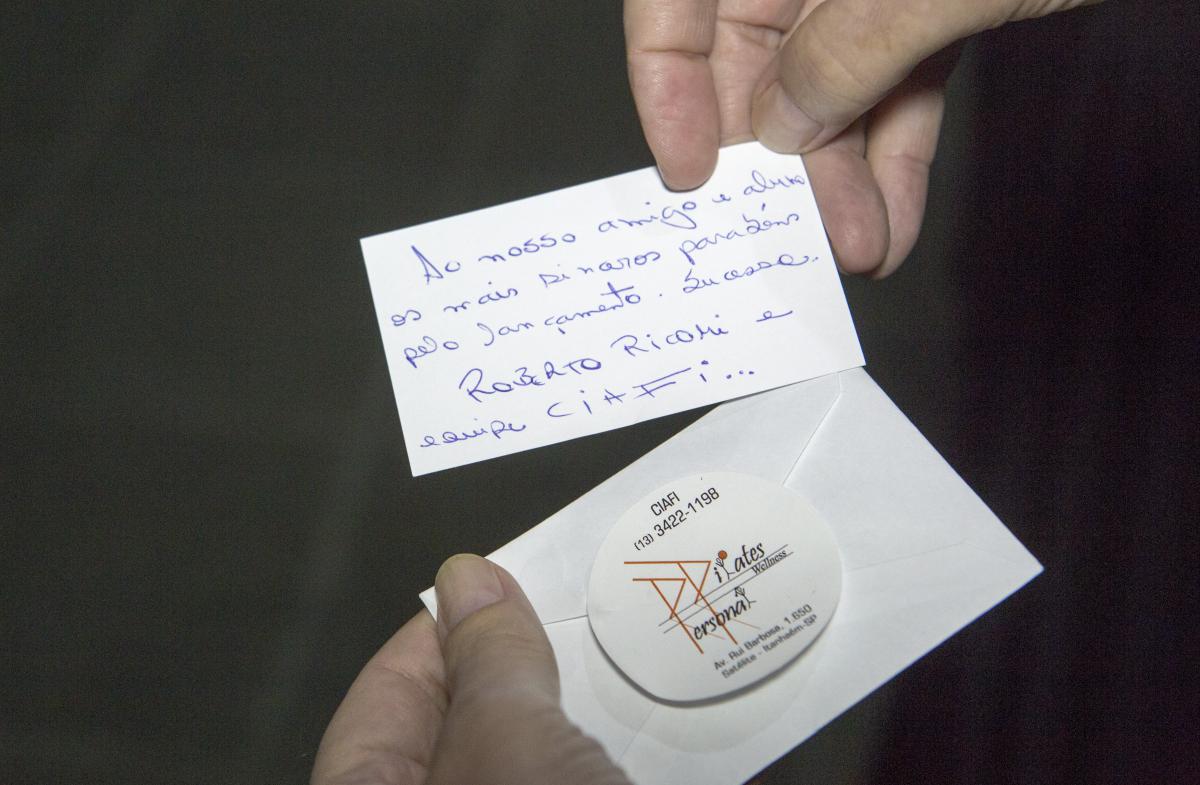 Ao nosso amigo e aluno
os mais sinceros parabéns
pelo lançamento. Sucesso.
ROBERTO RICOMI e
equipe CiAFi...
CIAFI
(13) 3422-1198
Pilates
Wellness
Personal
Av. Rui Barbosa, 1.650
Satélite - Itanhaém-SP